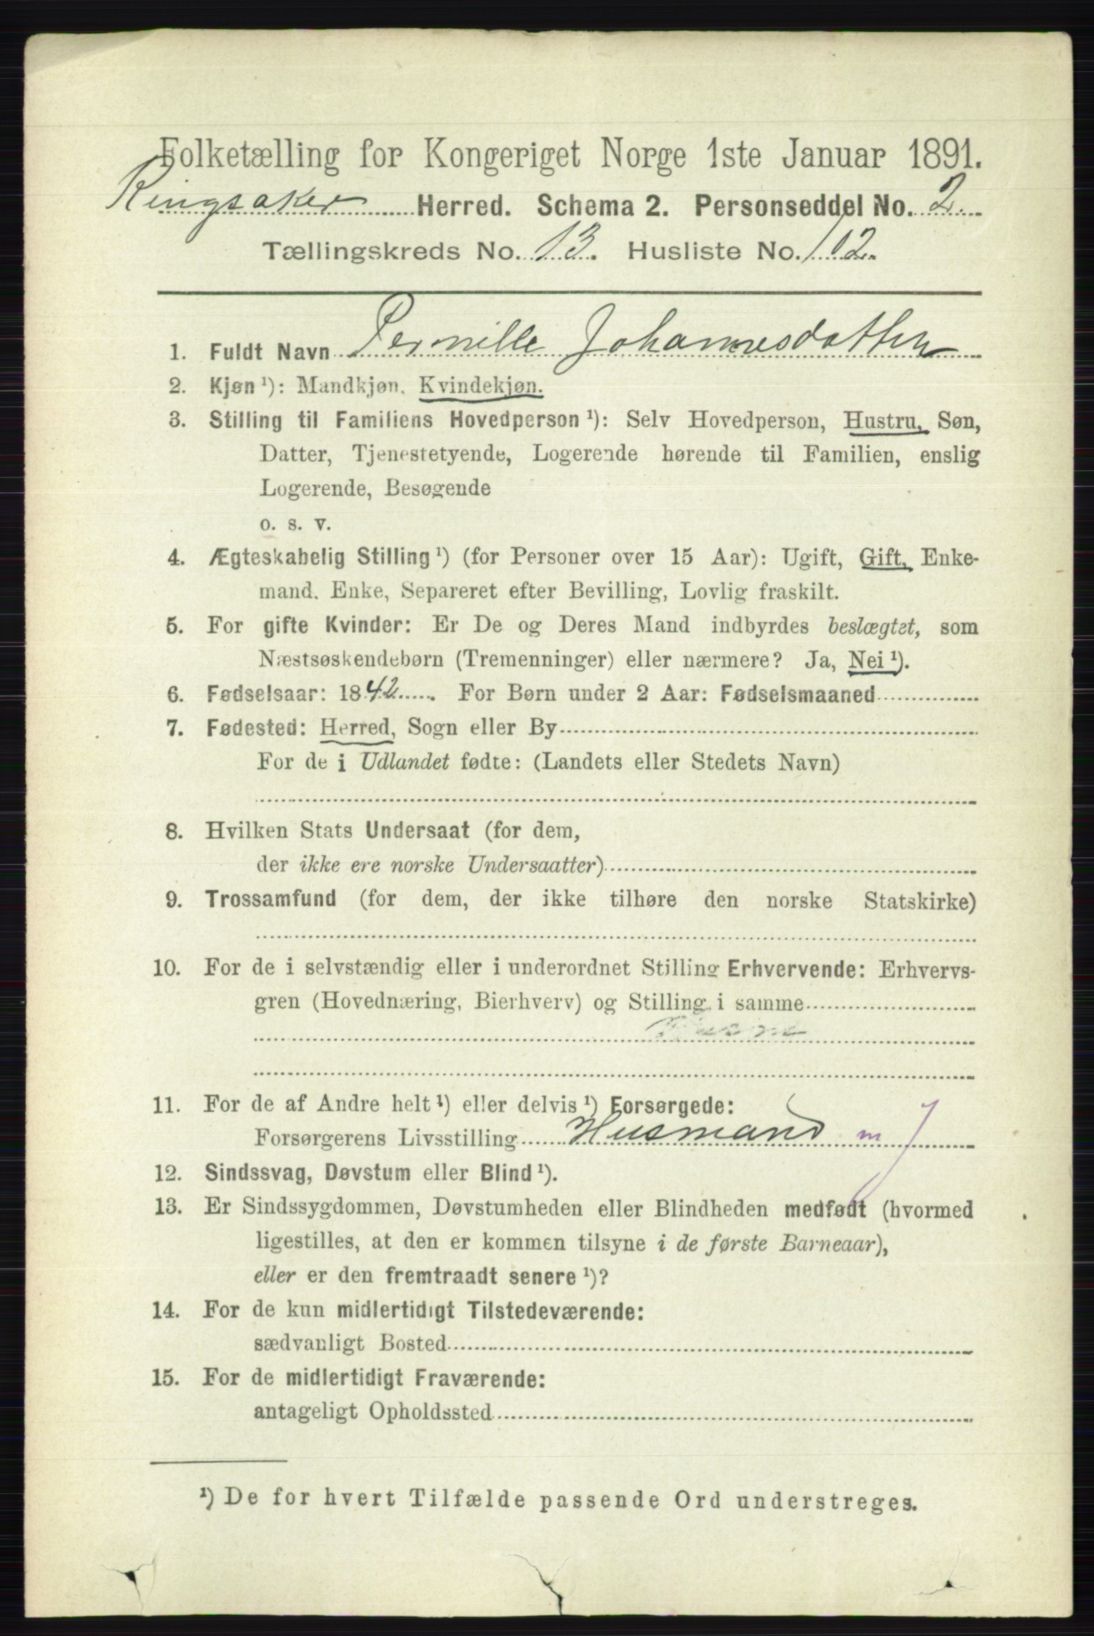 Folketælling for Kongeriget Norge 1ste Januar 1891.
Ringsaker Herred. Schema 2. Personseddel No. 2.
Tællingskreds No. 13. Husliste No. 102.
1. Fuldt Navn Pernille Johannesdatter
2. Kjøn ¹): Mandkjøn. Kvindekjøn.
3. Stilling til Familiens Hovedperson ¹): Selv Hovedperson, Hustru, Søn,
Datter, Tjenestetyende, Logerende hørende til Familien, enslig
Logerende, Besøgende
o. s. v.
4. Ægteskabelig Stilling ¹) (for Personer over 15 Aar): Ugift, Gift, Enke-
mand. Enke, Separeret efter Bevilling, Lovlig fraskilt.
5. For gifte Kvinder: Er De og Deres Mand indbyrdes beslægtet, som
Næstsøskendebørn (Tremenninger) eller nærmere? Ja, Nei ¹).
6. Fødselsaar: 1842. For Børn under 2 Aar: Fødselsmaaned
7. Fødested: Herred, Sogn eller By
For de i Udlandet fødte: (Landets eller Stedets Navn)
8. Hvilken Stats Undersaat (for dem,
der ikke ere norske Undersaatter)
9. Trossamfund (for dem, der ikke tilhøre den norske Statskirke)
10. For de i selvstændig eller i underordnet Stilling Erhvervende: Erhvervs-
gren (Hovednæring, Bierhverv) og Stilling i samme
11. For de af Andre helt ¹) eller delvis ¹) Forsørgede:
Forsørgerens Livsstilling Husmand m J
12. Sindssvag, Døvstum eller Blind ¹).
13. Er Sindssygdommen, Døvstumheden eller Blindheden medfødt (hvormed
ligestilles, at den er kommen tilsyne i de første Barneaar),
eller er den fremtraadt senere ¹)?
14. For de kun midlertidigt Tilstedeværende:
sædvanligt Bosted
15. For de midlertidigt Fraværende:
antageligt Opholdssted
¹) De for hvert Tilfælde passende Ord understreges.